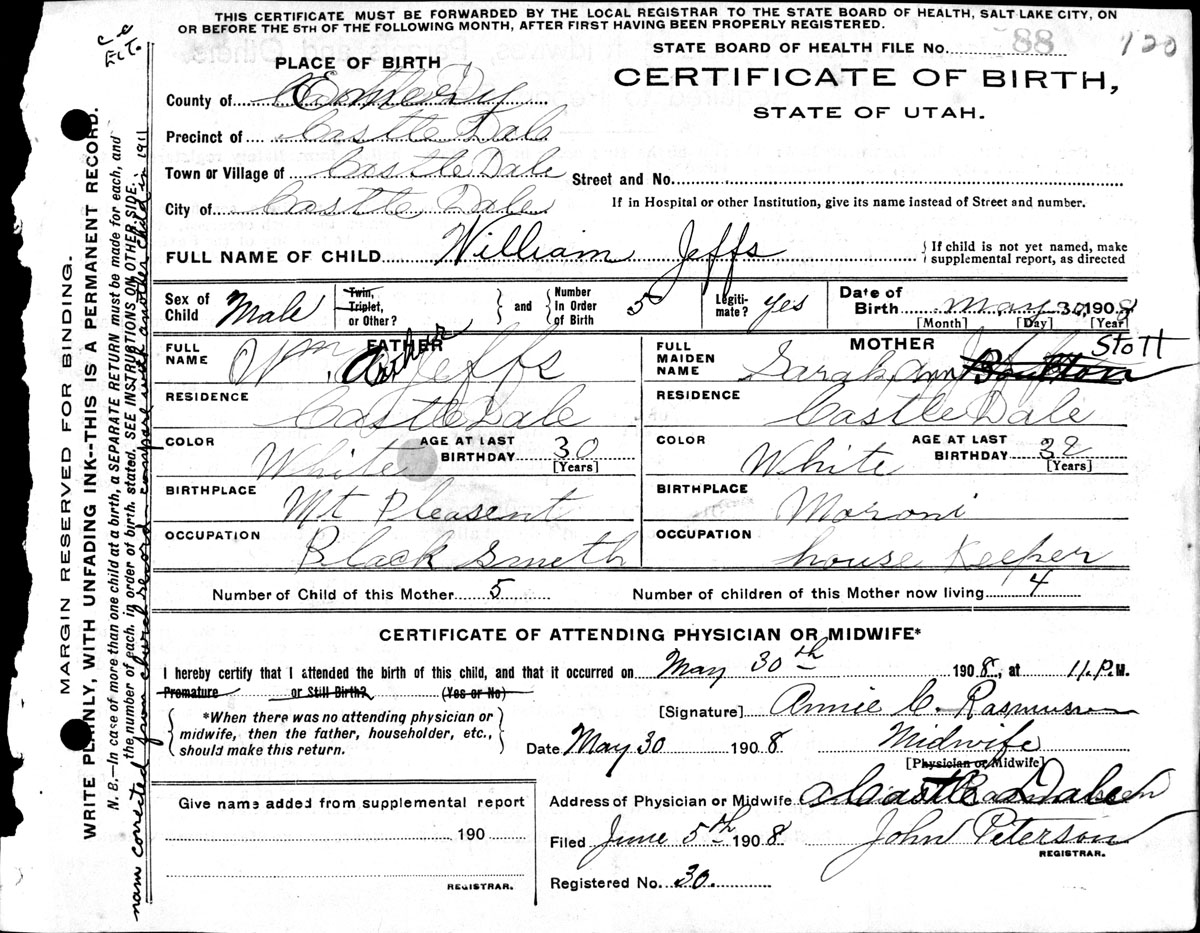 THIS CERTIFICATE MUST BE FORWARDED BY THE LOCAL REGISTRAR TO THE STATE BOARD OF HEALTH, SALT LAKE CITY, ON
OR BEFORE THE 5TH OF THE FOLLOWING MONTH, AFTER FIRST HAVING BEEN PROPERLY REGISTERED.
STATE BOARD OF HEALTH FILE No. 88 120
PLACE OF BIRTH
CERTIFICATE OF BIRTH,
STATE OF UTAH.
County of Emery
Precinct of Castle Dale
Town or Village of Castle Dale
Street and No.
City of Castle Dale
If in Hospital or other Institution, give its name instead of Street and number.
FULL NAME OF CHILD William Jeffs
{ If child is not yet named, make
{ supplemental report, as directed
Sex of Child Male
Twin, Triplet, or Other? } and { Number In Order of Birth 5
Legitimate? yes
Date of Birth May 30, 1908
[Month] [Day] [Year]
FATHER
FULL NAME Wm. Arthur Jeffs
RESIDENCE Castle Dale
COLOR White
AGE AT LAST BIRTHDAY 30
[Years]
BIRTHPLACE Mt Pleasent
OCCUPATION Black Smith
MOTHER
FULL MAIDEN NAME Sarah Ann Stott
RESIDENCE Castle Dale
COLOR White
AGE AT LAST BIRTHDAY 32
[Years]
BIRTHPLACE Moroni
OCCUPATION house Keeper
Number of Child of this Mother 5
Number of children of this Mother now living 4
CERTIFICATE OF ATTENDING PHYSICIAN OR MIDWIFE*
I hereby certify that I attended the birth of this child, and that it occurred on May 30th 1908, at 11. P.M.
Premature or Still Birth? (Yes or No)
*When there was no attending physician or
midwife, then the father, householder, etc.,
should make this return.
[Signature] Annie C. Rasmuson
Date May 30 1908 Midwife
[Physician or Midwife]
Give name added from supplemental report
190
REGISTRAR.
Address of Physician or Midwife Castle Dale
Filed June 5th 1908 John Peterson
REGISTRAR.
Registered No. 30.
MARGIN RESERVED FOR BINDING.
WRITE PLAINLY, WITH UNFADING INK--THIS IS A PERMANENT RECORD.
N. B.—In case of more than one child at a birth, a SEPARATE RETURN must be made for each, and
the number of each, in order of birth, stated. SEE INSTRUCTIONS ON OTHER SIDE.
nam corrected from church record compare with another child in 1911